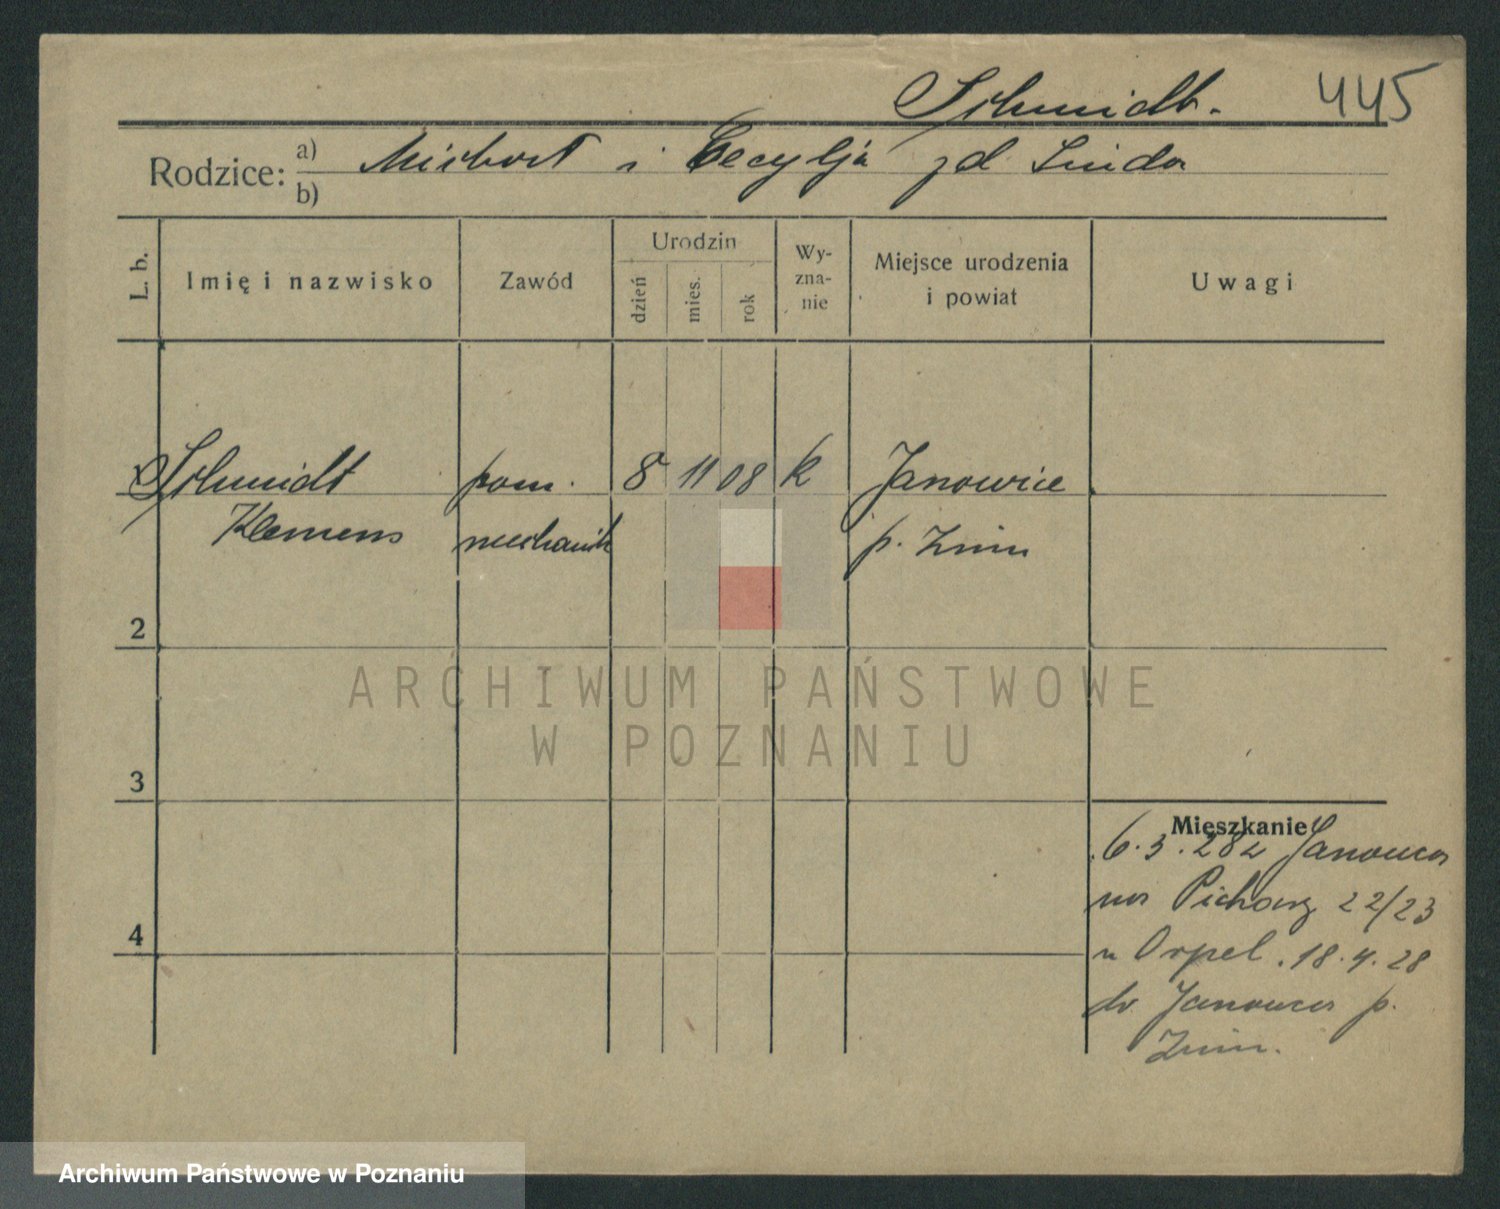 Schmidt.
445
Rodzice: a) Michał i Cecylja zd
b)
L. b.
Imię i nazwisko
Zawód
Urodzin
dzień
mies.
rok
Wy-
zna-
nie
Miejsce urodzenia
i powiat
Uwagi
Schmidt pom. 8 11 08 k Janowice
Klemens mechanik p. Żnin
2
3
4
ARCHIWUM PAŃSTWOWE
W POZNANIU
Mieszkanie
6.3.28 z Janowca
22/23
u 18.4.28
do Janowca p.
Żnin.
Archiwum Państwowe w Poznaniu